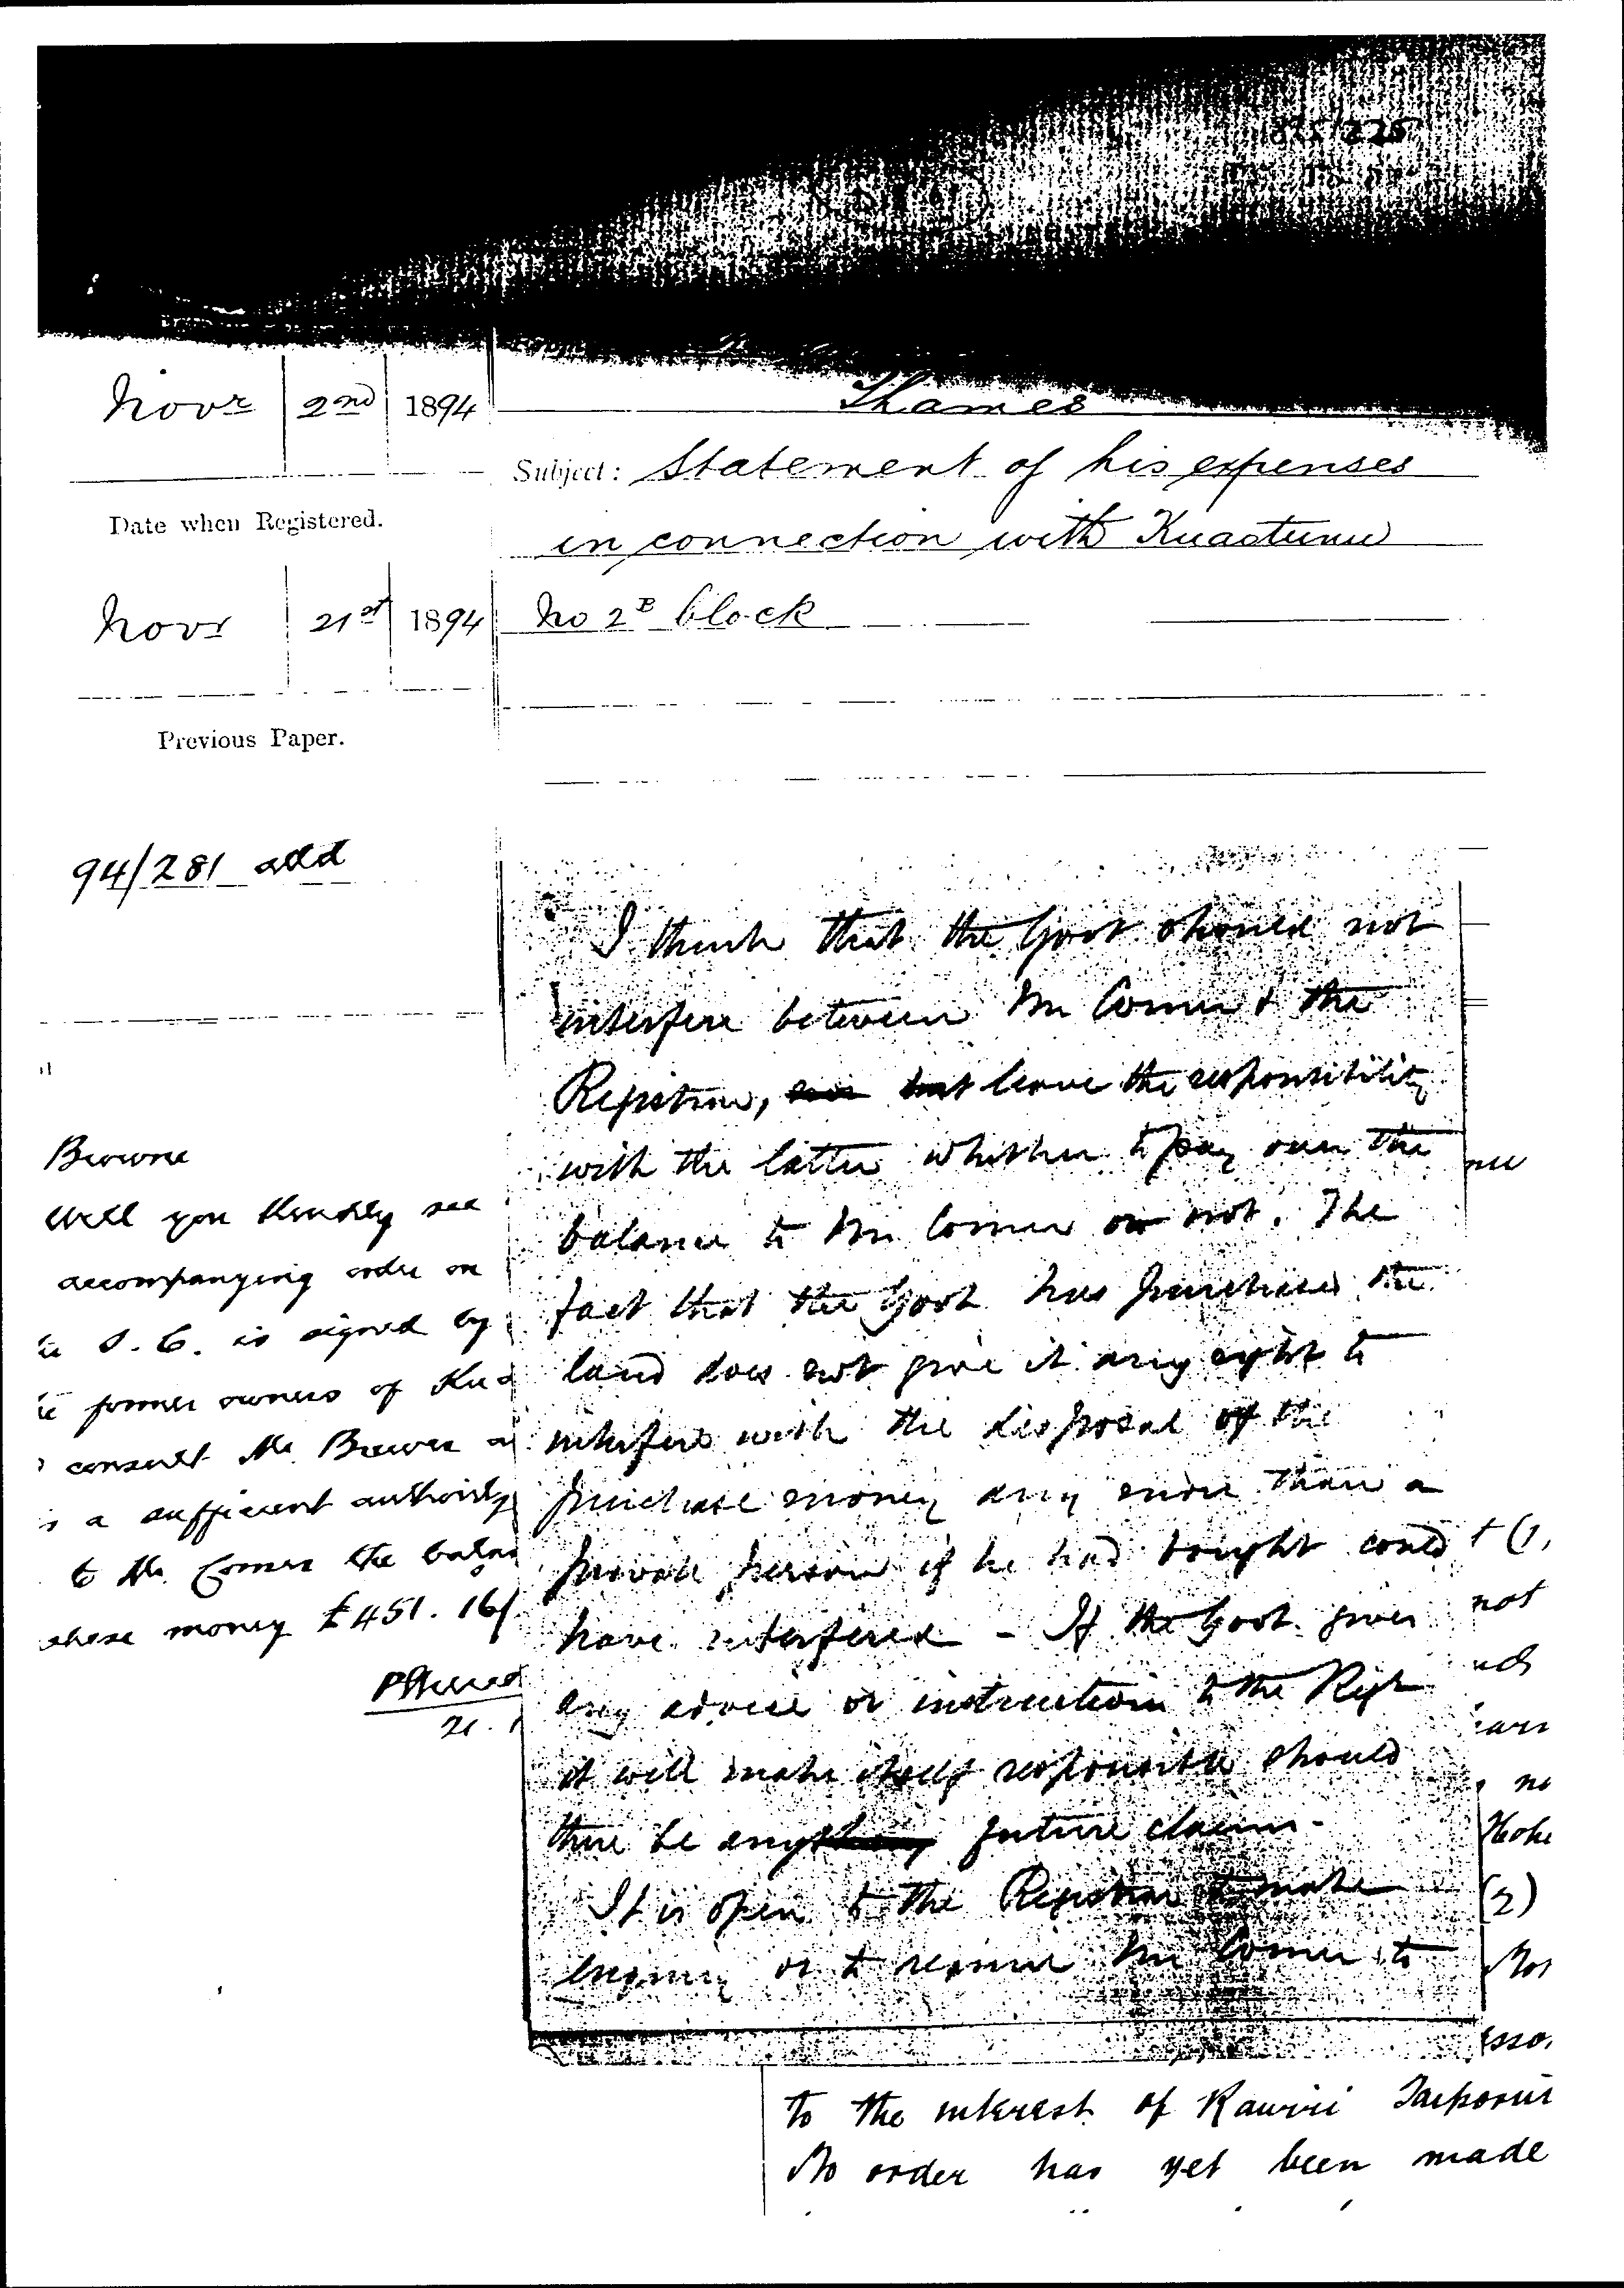 1895/225
Novr 2nd 1894
Thames
Subject: Statement of his expenses
in connection with Kuaotunu
No 2B block
Date when Registered.
Novr 21st 1894
Previous Paper.
94/281 attd
Browne
Will you kindly see
accompanying order on
S. C. is signed by
former owners of Kua
consult Mr. Brewer
is a sufficient authority
to Mr. Comer the balan
chase money £451.16/
21.1
I think that the Govt should not
interfere between Mr Comer & the
Registrar, but leave the responsibility
with the latter whether to pay over the
balance to Mr Comer or not. The
fact that the Govt has purchased the
land does not give it any right to
interfere with the disposal of the
purchase money any more than a
private person if he had bought could
have interfered - If the Govt. gives
any advice or instruction to the Regr
it will make itself responsible should
there be any future claims.
It is open to the Registrar to make
enquiry or to require Mr Comer to
not
(2)
to the interest of Rawiri
No order has yet been made